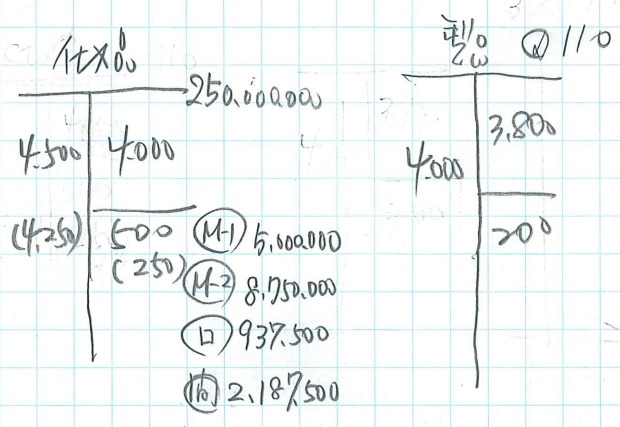 仕掛品
250.000.000
4.500 4.000
(4,250) 500
(250)
M-1 5,000.000
M-2 8,750.000
ロ 937.500
間 2.187,500
製品 @110
4.000 3,800
200